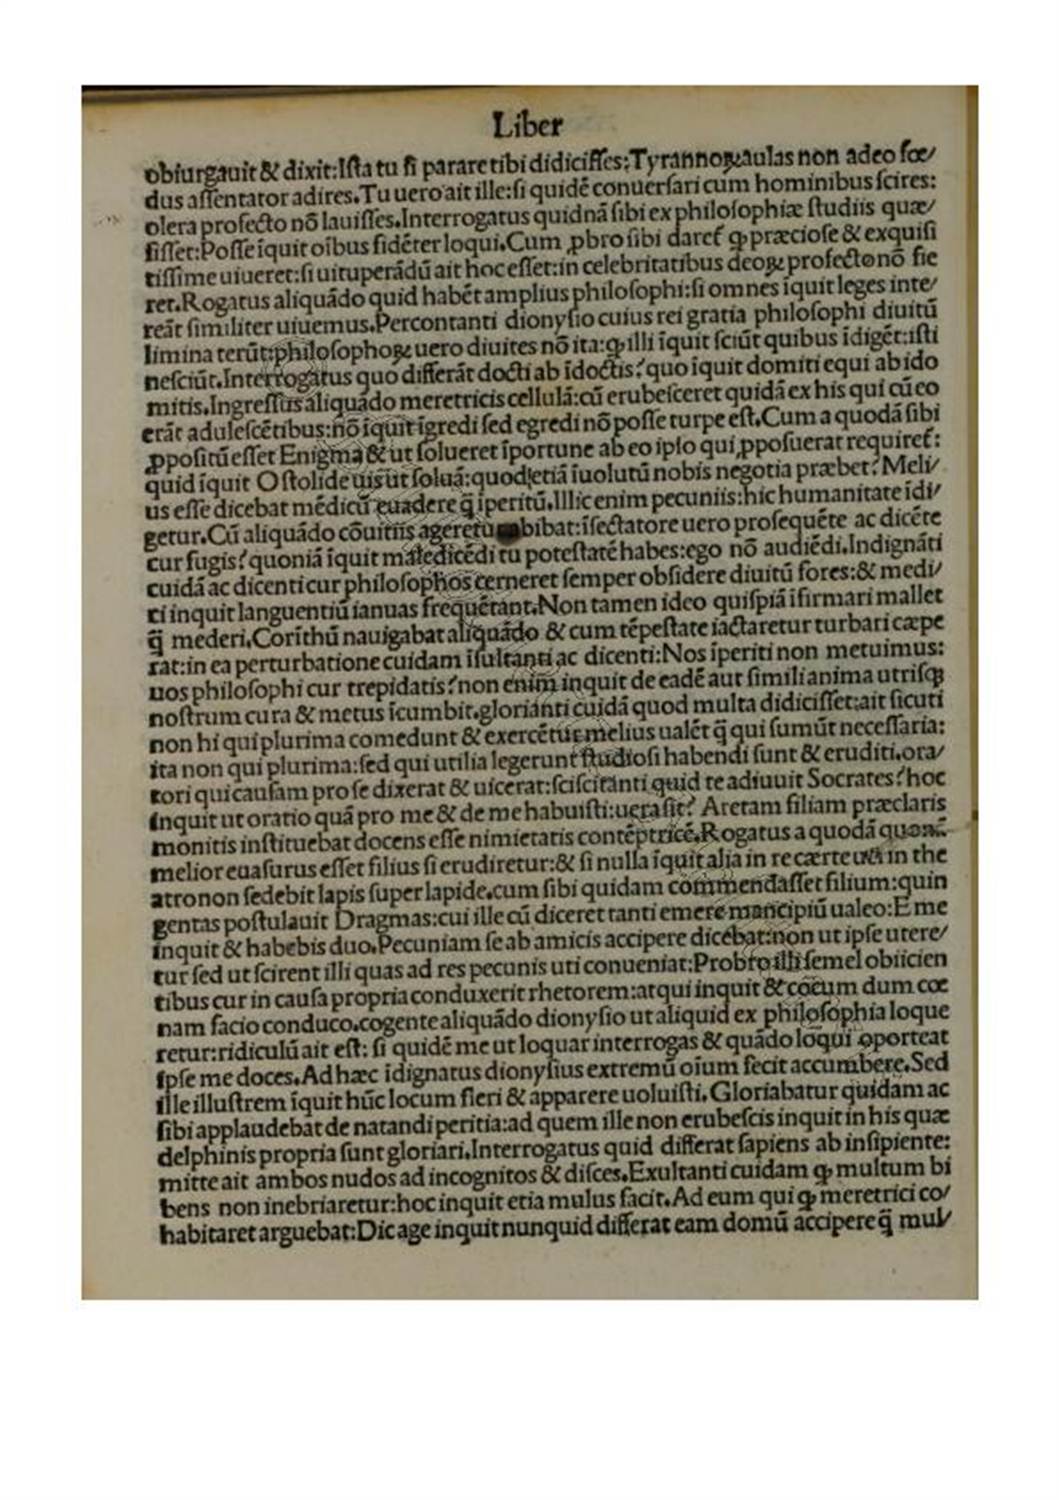 Liber
obiurgauit & dixit:Iſta tu ſi parare tibi didiciſſes:Tyrannoꝝ aulas non adeo fœ/
dus aſſentator adires.Tu uero ait ille:ſi quidē conuerſari cum hominibus ſcires:
olera profecto nō lauiſſes.Interrogatus quidnā ſibi ex philoſophiæ ſtudiis quæ/
ſiſſet:Poſſe īquit oībus fidēter loqui.Cum ꝓbro ſibi daret̄ ꝙ præcioſe & exquiſi
tiſſime uiueret:ſi uituperādū ait hoc eſſet:in celebritatibus deoꝝ profecto nō fie
ret.Rogatus aliquādo quid habēt amplius philoſophi:ſi omnes īquit leges inte/
reāt ſimiliter uiuemus.Percontanti dionyſio cuius rei gratia philoſophi diuitū
limina terūt:philoſophoꝝ uero diuites nō ita:ꝙ illi īquit ſciūt quibus īdigēt:iſti
neſciūt.Interrogatus quo differāt docti ab īdoctis?quo īquit domiti equi ab īdo
mitis.Ingreſſus aliquādo meretricis cellulā:cū erubeſceret quidā ex his qui cū eo
erāt aduleſcētibus:nō īquit īgredi ſed egredi nō poſſe turpe eſt.Cum a quodā ſibi
ꝓpoſitū eſſet Enigma & ut ſolueret īportune ab eo ipſo qui ꝓpoſuerat requiret̄:
quid īquit O ſtolide uis ut ſoluā:quod etiā īuolutū nobis negotia præbet?Meli/
us eſſe dicebat mēdicū euadere q̄ īperitū.Illic enim pecuniis:hic humanitate īdi/
getur.Cū aliquādo cōuitiis ageretur abibat:īſectatore uero proſequēte ac dicēte
cur fugis?quoniā īquit maledicēdi tu poteſtatē habes:ego nō audiēdi.Indignāti
cuidā ac dicenti cur philoſophos cerneret ſemper obſidere diuitū fores:& medi/
ci inquit languentiū ianuas frequētant.Non tamen ideo quiſpiā īfirmari mallet
q̄ mederi.Corīthū nauigabat aliquādo & cum tēpeſtate iactaretur turbari cæpe
rat:in ea perturbatione cuidam īſultanti ac dicenti:Nos īperiti non metuimus:
uos philoſophi cur trepidatis?non enim inquit de eadē aut ſimili anima utriſꝙ
noſtrum cura & metus īcumbit.glorianti cuidā quod multa didiciſſet:ait ſicuti
non hi qui plurima comedunt & exercētur melius ualēt q̄ qui ſumūt neceſſaria:
ita non qui plurima:ſed qui utilia legerunt ſtudioſi habendi ſunt & eruditi.ora/
tori qui cauſam pro ſe dixerat & uicerat:ſciſcitanti quid te adiuuit Socrates?hoc
inquit ut oratio quā pro me & de me habuiſti:uera ſit? Aretam filiam præclaris
monitis inſtituebat docens eſſe nimietatis contēptricē.Rogatus a quodā
melior euaſurus eſſet filius ſi erudiretur:& ſi nulla īquit alia in re cærte uel in the
atro non ſedebit lapis ſuper lapide.cum ſibi quidam commendaſſet filium:quin
gentas poſtulauit Dragmas:cui ille cū diceret tanti emere mancipiū ualeo:Eme
inquit & habebis duo.Pecuniam ſe ab amicis accipere dicebat:non ut ipſe utere/
tur ſed ut ſcirent illi quas ad res pecunis uti conueniat:Probro illi ſemel obiicien
tibus cur in cauſa propria conduxerit rhetorem:atqui inquit & cocum dum cœ
nam facio conduco.cogente aliquādo dionyſio ut aliquid ex philoſophia loque
retur:ridiculū ait eſt: ſi quidē me ut loquar interrogas & quādo loqui oporteat
ipſe me doces.Ad hæc īdignatus dionyſius extremū oīum fecit accumbere.Sed
ille illuſtrem īquit hūc locum fieri & apparere uoluiſti.Gloriabatur quidam ac
ſibi applaudebat de natandi peritia:ad quem ille non erubeſcis inquit in his quæ
delphinis propria ſunt gloriari.Interrogatus quid differat ſapiens ab inſipiente:
mitte ait ambos nudos ad incognitos & diſces.Exultanti cuidam ꝙ multum bi
bens non inebriaretur:hoc inquit etia mulus facit.Ad eum qui ꝙ meretrici co/
habitaret arguebat:Dic age inquit nunquid differat eam domū accipere q̄ mul/